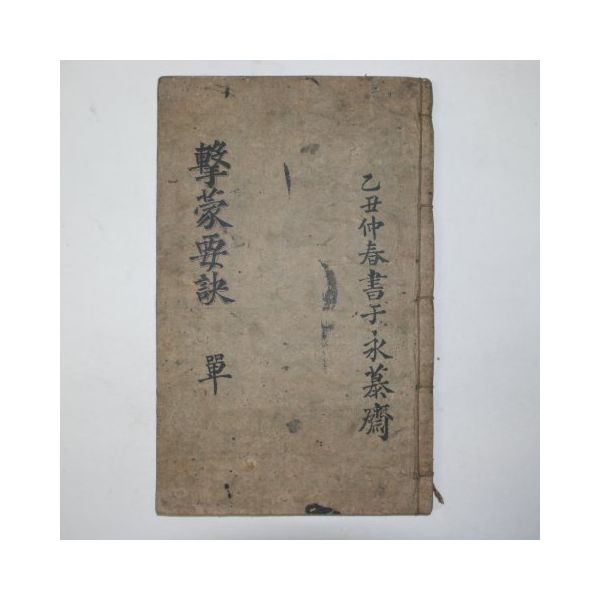 乙丑仲春書于永慕齋
擊蒙要訣 單